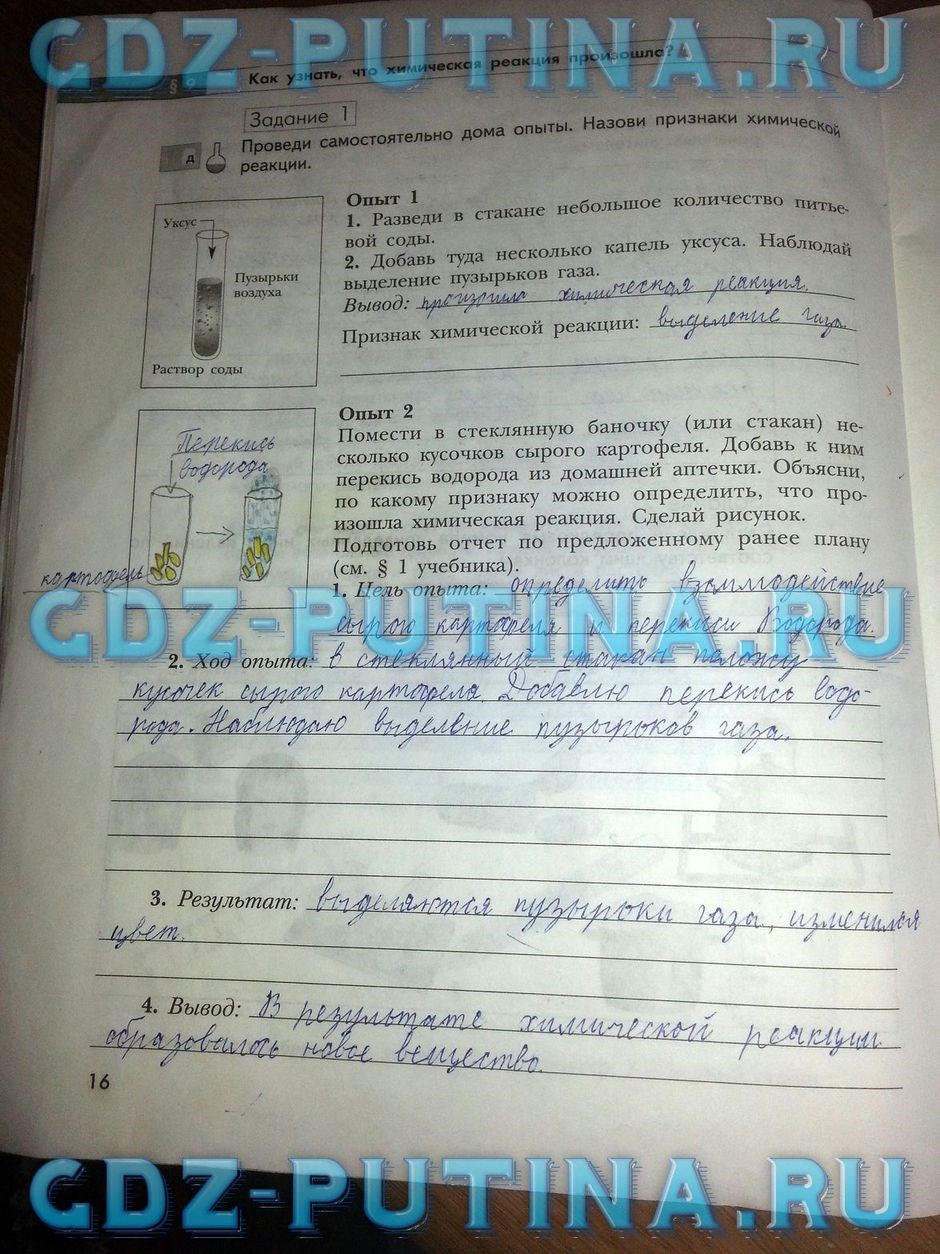 GDZ-PUTINA.RU
§ 9 Как узнать, что химическая реакция произошла?
Задание 1
д
Проведи самостоятельно дома опыты. Назови признаки химической
реакции.
Уксус
Пузырьки
воздуха
Раствор соды
Опыт 1
1. Разведи в стакане небольшое количество питье-
вой соды.
2. Добавь туда несколько капель уксуса. Наблюдай
выделение пузырьков газа.
Вывод: произошла химическая реакция.
Признак химической реакции: выделение газа
Перекись
водорода
картофель
Опыт 2
Помести в стеклянную баночку (или стакан) не-
сколько кусочков сырого картофеля. Добавь к ним
перекись водорода из домашней аптечки. Объясни,
по какому признаку можно определить, что про-
изошла химическая реакция. Сделай рисунок.
Подготовь отчет по предложенному ранее плану
(см. § 1 учебника).
1. Цель опыта: определить взаимодействие
сырого картофеля и перекиси водорода.
GDZ-PUTINA.RU
2. Ход опыта: в стеклянный стакан положу
кусочек сырого картофеля. Добавлю перекись водо-
рода. Наблюдаю выделение пузырьков газа.
3. Результат: выделяются пузырьки газа, изменился
цвет.
4. Вывод: В результате химической реакции
образовалось новое вещество.
16
GDZ-PUTINA.RU